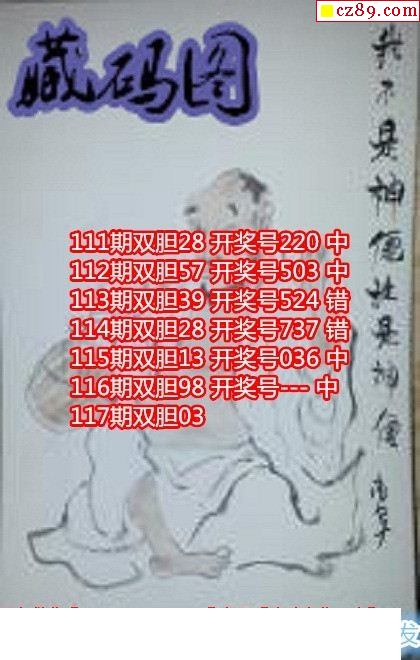 cz89.com
藏码图
我不是神仙谁是神仙
111期双胆28 开奖号220 中
112期双胆57 开奖号503 中
113期双胆39 开奖号524 错
114期双胆28 开奖号737 错
115期双胆13 开奖号036 中
116期双胆98 开奖号--- 中
117期双胆03
发